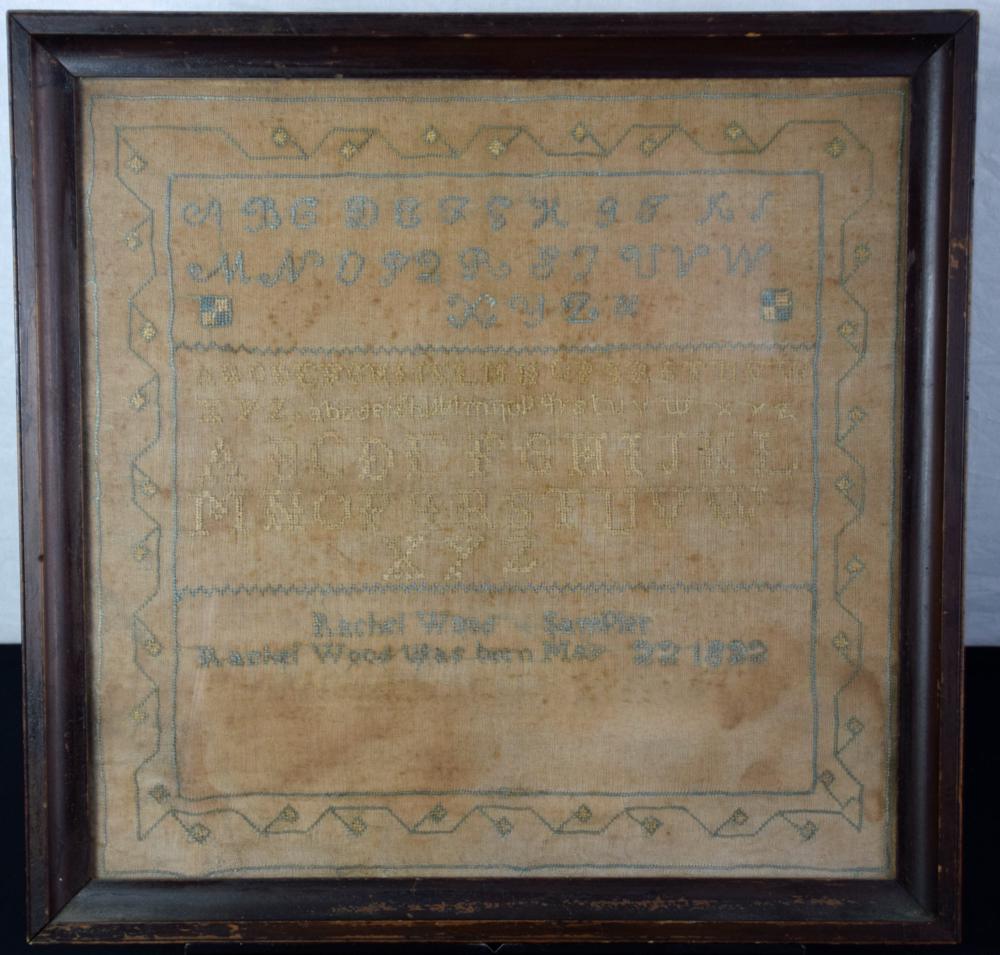 A B C D E F G H I J K L
M N O P Q R S T U V W
X Y Z &
A B C D E F G H I J K L M N O P Q R S T U V W
X Y Z a b c d e f g h i j k l m n o p q r s t u v w x y z &
A B C D E F G H I J K L
M N O P Q R S T U V W
X Y Z
Rachel Wood Sampler
Rachel Wood Was born May 22 1822